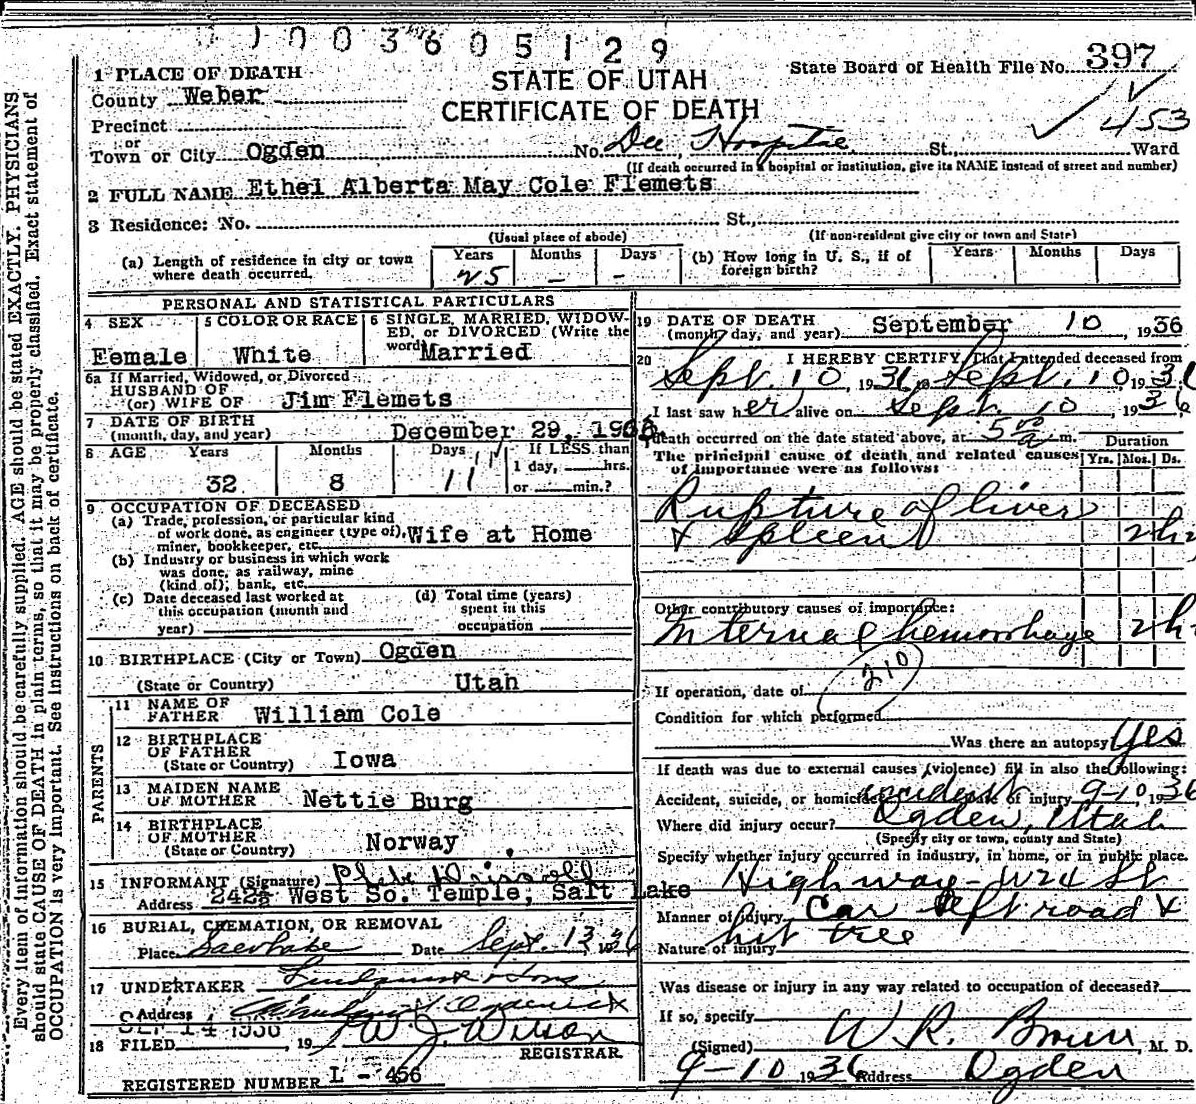 0 1 0 0 3 6 0 5 1 2 9
STATE OF UTAH
CERTIFICATE OF DEATH
State Board of Health File No. 397
453
1 PLACE OF DEATH
County Weber
Precinct
or
Town or City Ogden No. Dee Hospital St., Ward
(If death occurred in a hospital or institution, give its NAME instead of street and number)
2 FULL NAME Ethel Alberta May Cole Flemets
3 Residence: No. St.,
(Usual place of abode) (If non-resident give city or town and State)
(a) Length of residence in city or town where death occurred. Years 25 Months - Days -
(b) How long in U. S., if of foreign birth? Years Months Days
PERSONAL AND STATISTICAL PARTICULARS
4 SEX Female
5 COLOR OR RACE White
6 SINGLE, MARRIED, WIDOWED, or DIVORCED (Write the word) Married
6a If Married, Widowed, or Divorced
HUSBAND OF
(or) WIFE OF Jim Flemets
7 DATE OF BIRTH
(month, day, and year) December 29,
8 AGE Years 32 Months 8 Days 11
If LESS than
1 day, hrs.
or min.?
9 OCCUPATION OF DECEASED
(a) Trade, profession, or particular kind
of work done, as engineer (type of), Wife at Home
miner, bookkeeper, etc.
(b) Industry or business in which work
was done, as railway, mine
(kind of); bank, etc.
(c) Date deceased last worked at
this occupation (month and
year)
(d) Total time (years)
spent in this
occupation
10 BIRTHPLACE (City or Town) Ogden
(State or Country) Utah
PARENTS
11 NAME OF
FATHER William Cole
12 BIRTHPLACE
OF FATHER
(State or Country) Iowa
13 MAIDEN NAME
OF MOTHER Nettie Burg
14 BIRTHPLACE
OF MOTHER
(State or Country) Norway
15 INFORMANT (Signature) Driscoll
Address 242 West So. Temple, Salt Lake
16 BURIAL, CREMATION, OR REMOVAL
Place Date Sept. 13, 1936
17 UNDERTAKER Lindquist & Sons
Address
SEP 14 1936
18 FILED , 19 W. J. Wilson
REGISTRAR.
REGISTERED NUMBER L - 456
19 DATE OF DEATH
(month, day, and year) September 10, 1936
20 I HEREBY CERTIFY, That I attended deceased from
Sept. 10, 1936 to Sept. 10 1936
I last saw her alive on Sept. 10, 1936
death occurred on the date stated above, at 5 00 a m.
The principal cause of death and related causes
of importance were as follows:
Duration
Yrs. Mos. Ds.
Rupture of liver
& Spleen 2 h
Other contributory causes of importance:
Internal hemorrhage 2 h
210
If operation, date of
Condition for which performed
Was there an autopsy Yes
If death was due to external causes (violence) fill in also the following:
Accident, suicide, or homicide accident of injury 9-10, 1936
Where did injury occur? Ogden, Utah
(Specify city or town, county and State)
Specify whether injury occurred in industry, in home, or in public place.
Highway - W 24 St
Manner of injury Car left road &
Nature of injury hit tree
Was disease or injury in any way related to occupation of deceased?
If so, specify
(Signed) W. R. Brown, M. D.
9-10 1936 Address Ogden
Every item of information should be carefully supplied. AGE should be stated EXACTLY. PHYSICIANS
should state CAUSE OF DEATH in plain terms, so that it may be properly classified. Exact statement of
OCCUPATION is very Important. See instructions on back of certificate.